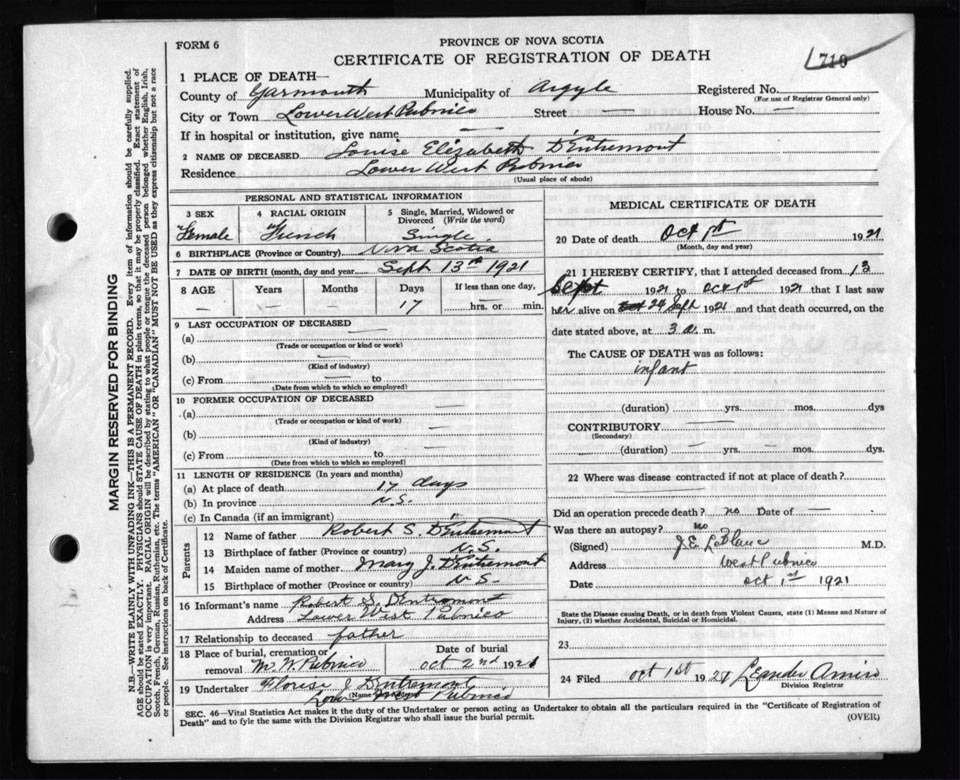 FORM 6
PROVINCE OF NOVA SCOTIA
CERTIFICATE OF REGISTRATION OF DEATH
710
1 PLACE OF DEATH—
County of Yarmouth Municipality of Argyle Registered No.
(For use of Registrar General only)
City or Town Lower West Pubnico Street — House No. —
If in hospital or institution, give name —
2 NAME OF DECEASED Louise Elizabeth D'Entremont
Residence Lower West Pubnico
(Usual place of abode)
PERSONAL AND STATISTICAL INFORMATION
3 SEX Female
4 RACIAL ORIGIN French
5 Single, Married, Widowed or Divorced (Write the word) Single
6 BIRTHPLACE (Province or Country) Nova Scotia
7 DATE OF BIRTH (month, day and year) Sept 13th 1921
8 AGE Years Months Days If less than one day,
— — — 17 — hrs. or — min.
9 LAST OCCUPATION OF DECEASED
(a) —
(Trade or occupation or kind or work)
(b) —
(Kind of industry)
(c) From — to —
(Date from which to which so employed)
10 FORMER OCCUPATION OF DECEASED
(a) —
(Trade or occupation or kind of work)
(b) —
(Kind of industry)
(c) From — to —
(Date from which to which so employed)
11 LENGTH OF RESIDENCE (In years and months)
(a) At place of death 17 days
(b) In province N.S.
(c) In Canada (if an immigrant)
Parents
12 Name of father Robert S. D'Entremont
13 Birthplace of father (Province or country) N.S.
14 Maiden name of mother Mary J. D'Entremont
15 Birthplace of mother (Province or country) N S.
16 Informant's name Robert S. D'Entremont
Address Lower West Pubnico
17 Relationship to deceased father
18 Place of burial, cremation or removal M. W. Pubnico Date of burial Oct 2nd 1921
19 Undertaker J D'Entremont
(Name) Lower West Pubnico
MEDICAL CERTIFICATE OF DEATH
20 Date of death Oct 1st 1921
(Month, day and year)
21 I HEREBY CERTIFY, that I attended deceased from 13
Sept 1921 to Oct 1st 1921 that I last saw
her alive on 24 Sept 1921 and that death occurred, on
date stated above, at 3 a. m.
The CAUSE OF DEATH was as follows:
infant
(duration) yrs. mos. dys
CONTRIBUTORY —
(Secondary)
— (duration) — yrs. — mos. — dys
22 Where was disease contracted if not at place of death?
—
Did an operation precede death? no Date of —
Was there an autopsy? no
(Signed) J.E. LeBlanc M.D.
Address West Pubnico
Date Oct 1st 1921
State the Disease causing Death, or in death from Violent Causes, state (1) Means and Nature of Injury, (2) whether Accidental, Suicidal or Homicidal.
23
24 Filed Oct 1st 1921 Leander Amiro
Division Registrar
SEC. 46—Vital Statistics Act makes it the duty of the Undertaker or person acting as Undertaker to obtain all the particulars required in the "Certificate of Registration of
Death" and to fyle the same with the Division Registrar who shall issue the burial permit.
(OVER)
MARGIN RESERVED FOR BINDING
N.B.—WRITE PLAINLY WITH UNFADING INK—THIS IS A PERMANENT RECORD. Every item of information should be carefully supplied.
AGE should be stated EXACTLY. PHYSICIANS should STATE CAUSE OF DEATH in plain terms, so that it may be properly classified. Exact statement of
OCCUPATION is very important. RACIAL ORIGIN will be described by stating to what people or tongue the deceased person belonged whether English, Irish,
Scotch, French, German, Russian, Ruthenian, etc. The terms "AMERICAN" OR "CANADIAN" MUST NOT BE USED as they express citizenship but not a race
or people. See instructions on back of Certificate.